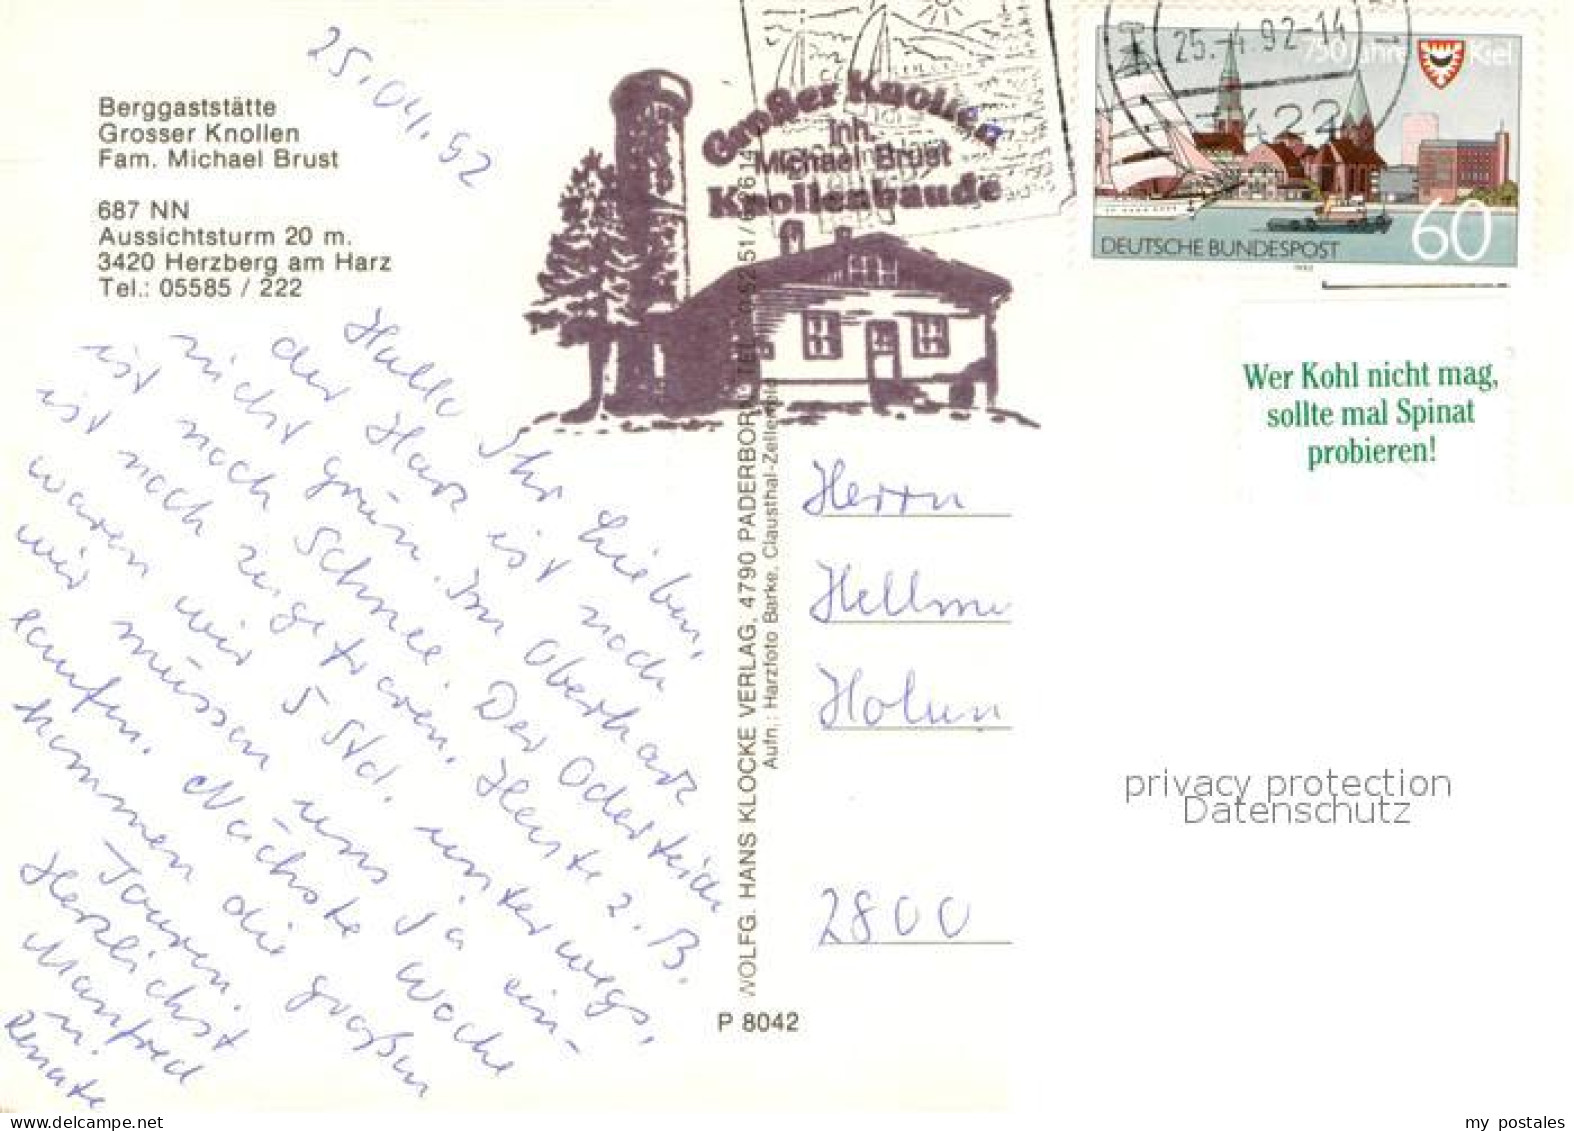 25.04.92
Berggaststätte
Grosser Knollen
Fam. Michael Brust
687 NN
Aussichtsturm 20 m.
3420 Herzberg am Harz
Tel.: 05585 / 222
Großer Knollen
Inh.
Michael Brust
Knollenbaude
25.-4.92-14
750 Jahre Kiel
DEUTSCHE BUNDESPOST
60
1992
Wer Kohl nicht mag,
sollte mal Spinat
probieren!
Hallo Ihr Lieben,
der Harz ist noch
nicht grün. Im Oberharz
ist noch Schnee. Der Oderteich
ist noch zugefroren. Heute z. B.
waren wir 5 Std. unterwegs,
wir müssen uns ja ein-
laufen. Nächste Woche
kommen die großen
Touren.
Herzlichst
Manfred
u.
Renate
WOLFG. HANS KLOCKE VERLAG, 4790 PADERBORN, TEL.
Aufn.: Harzfoto Barke, Clausthal-Zellerfeld
P 8042
Herrn
2800
privacy protection
Datenschutz
my postales